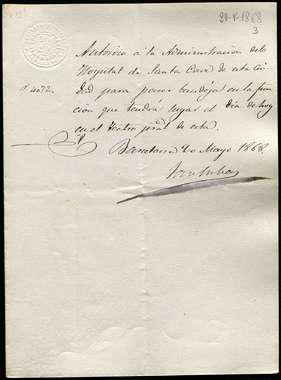 21-5-1868
3
Autorizo á la Administracion del
Hospital de Santa Cruz de esta Ciu
dad para poner bandejas en la fun
cion que tendrá lugar el dia de hoy
en el teatro pral de esta.
Nº 4072.
Barcelona Mayo 1868.